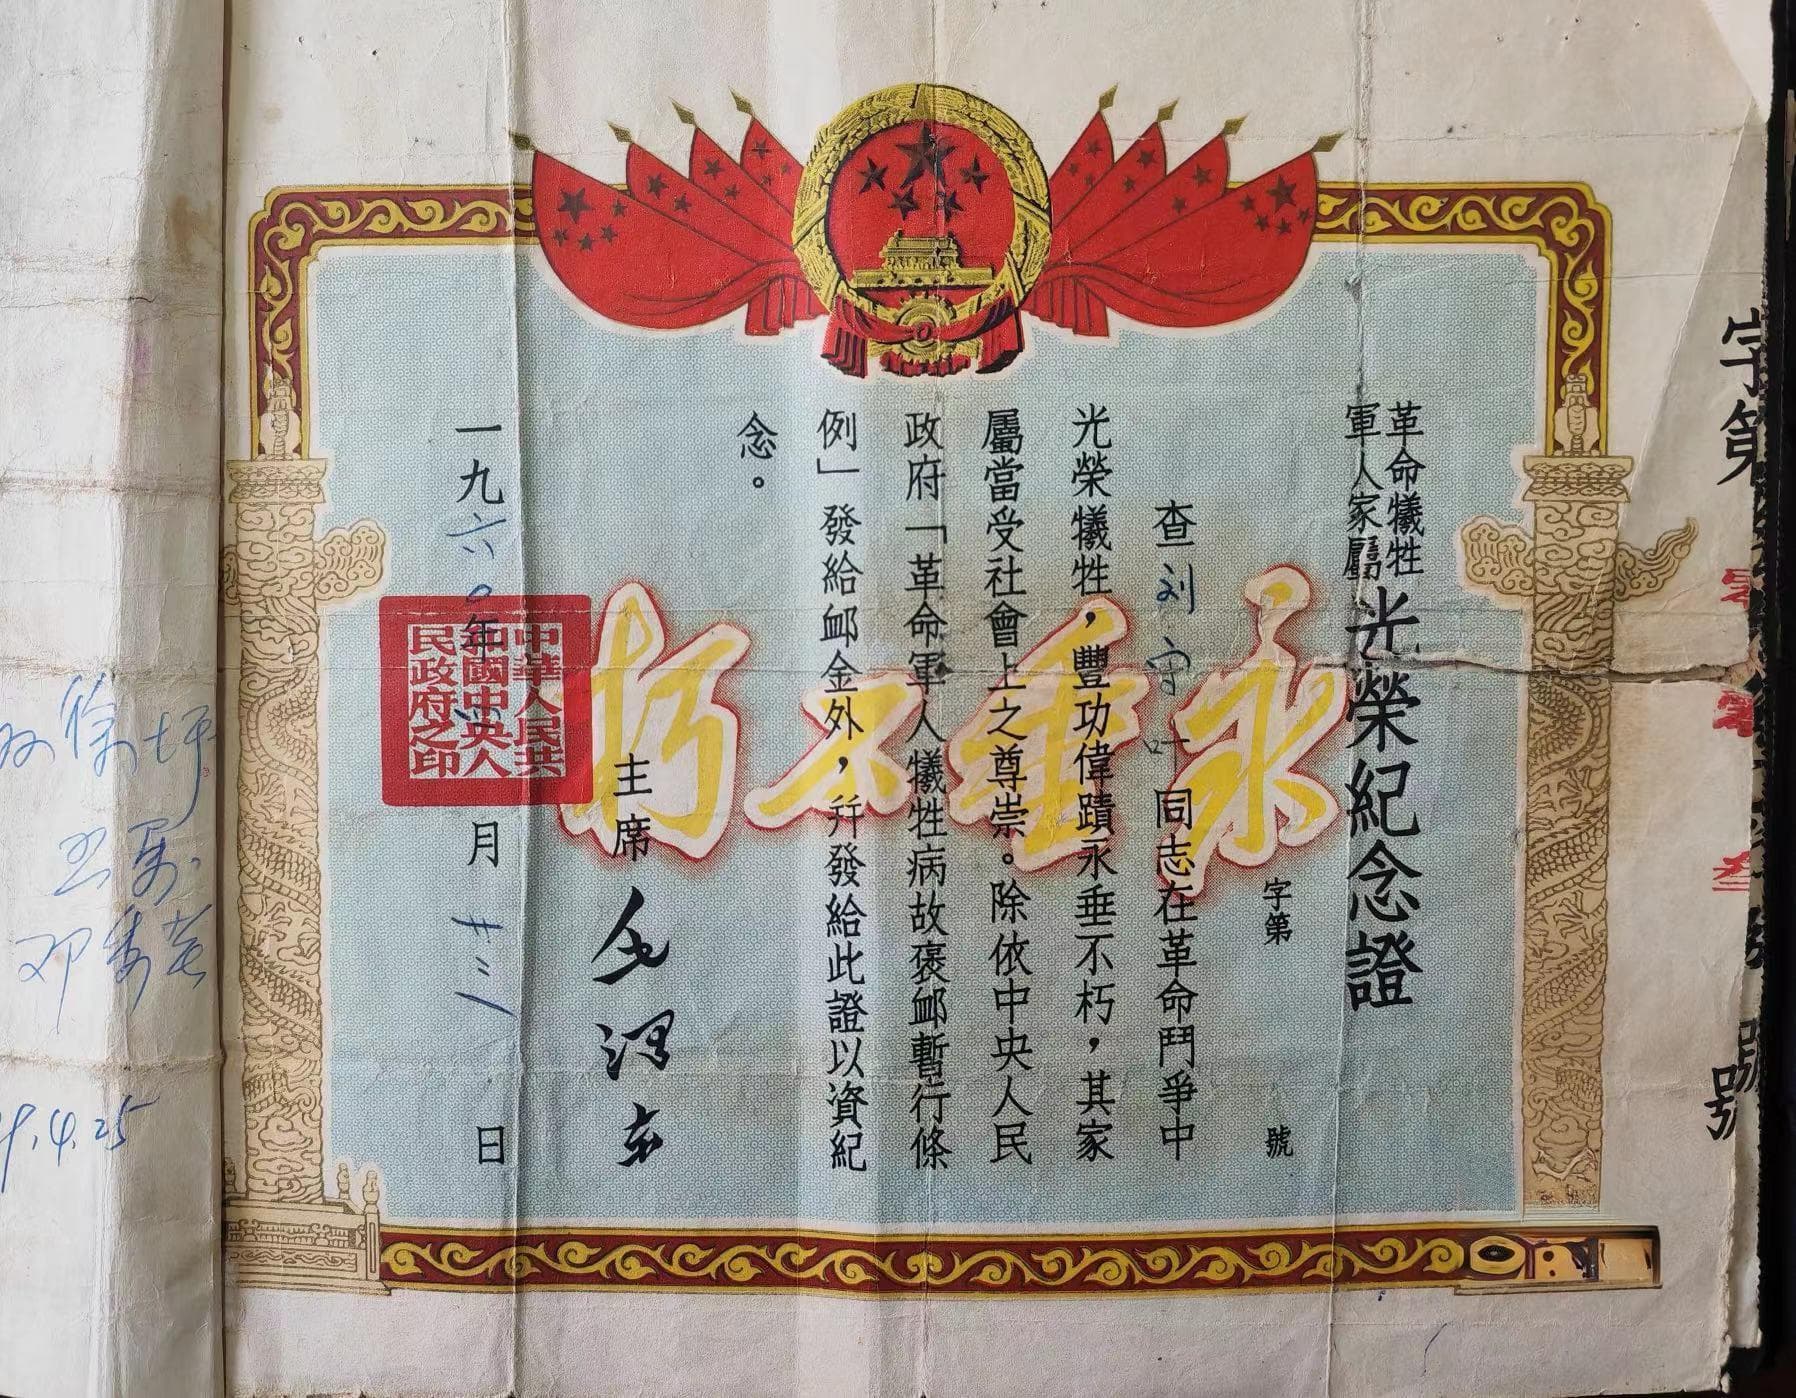 革命犧牲
軍人家屬
光榮紀念證
字第 號
查刘守叶同志在革命鬥爭中
光榮犧牲，豐功偉蹟永垂不朽，其家
屬當受社會上之尊崇。除依中央人民
政府「革命軍人犧牲病故褒卹暫行條
例」發給卹金外，幷發給此證以資紀
念。
主席 毛澤东
一九六〇年 月 日
永垂不朽
中華人民共
和國中央人
民政府之印
字第
號
4.25